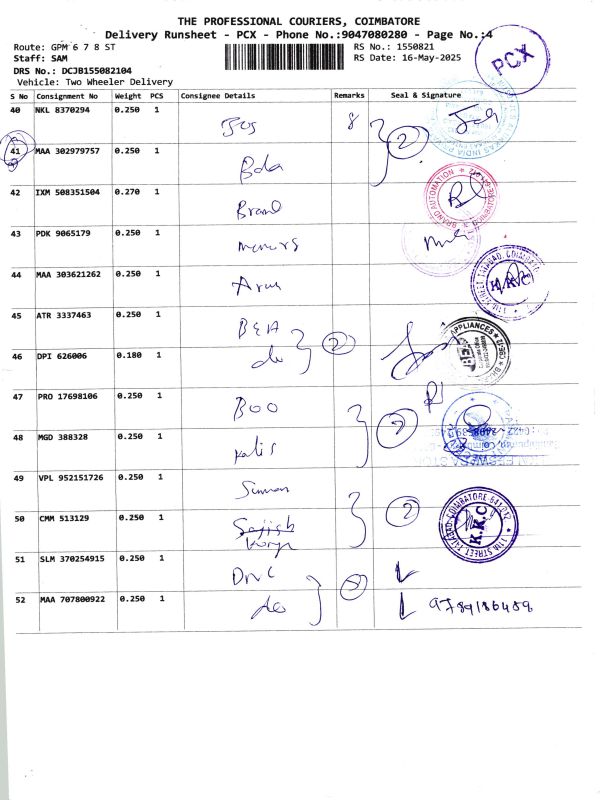 THE PROFESSIONAL COURIERS, COIMBATORE
Delivery Runsheet - PCX - Phone No.:9047080280 - Page No.:4
Route: GPM 6 7 8 ST
RS No.: 1550821
Staff: SAM
RS Date: 16-May-2025
DRS No.: DCJB155082104
Vehicle: Two Wheeler Delivery
PCX
S No Consignment No Weight PCS Consignee Details Remarks Seal & Signature
40 NKL 8370294 0.250 1
41 MAA 302979757 0.250 1
2
42 IXM 508351504 0.270 1 Brand
BRAND AUTOMATION
43 PDK 9065179 0.250 1
44 MAA 303621262 0.250 1 Arun
K.K.C
45 ATR 3337463 0.250 1
APPLIANCES
46 DPI 626006 0.180 1 do 2
47 PRO 17698106 0.250 1 BOO
48 MGD 388328 0.250 1 2
49 VPL 952151726 0.250 1 Suman
50 CMM 513129 0.250 1 2
K.K.C
11th STREET
COIMBATORE-641 012
51 SLM 370254915 0.250 1
52 MAA 707800922 0.250 1 do 2